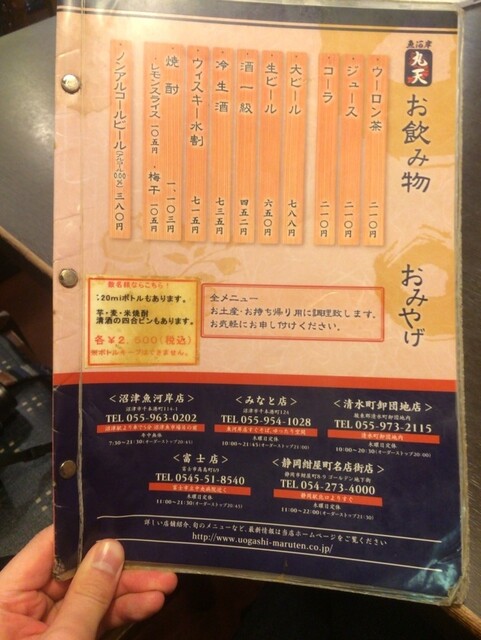 魚河岸
丸天
お飲み物
ウーロン茶 二一〇円
ジュース 二一〇円
コーラ 二一〇円
大ビール 七八八円
生ビール 六五〇円
酒一級 四五二円
冷生酒 七三五円
ウィスキー水割 七一五円
焼酎 一、一〇三円
レモンスライス一〇五円・梅干一〇五円
ノンアルコールビール 三八〇円
おみやげ
全メニュー
お土産・お持ち帰り用に調理致します。
お気軽にお申し付けください。
数名様ならこちら!
720mlボトルもあります。
芋・麦・米焼酎
清酒の四合ビンもあります。
各￥2,600(税込)
※ボトルキープはできません。
＜沼津魚河岸店＞
TEL 055-963-0202
年中無休
7:30～21:30(オーダーストップ20:45)
＜みなと店＞
TEL 055-954-1028
水曜日定休
10:00～21:45(オーダーストップ21:00)
＜清水町卸団地店＞
TEL 055-973-2115
清水町卸団地内
水曜日定休
10:00～20:30(オーダーストップ20:00)
＜富士店＞
TEL 0545-51-8540
木曜日定休
11:00～21:30(オーダーストップ20:45)
＜静岡紺屋町名店街店＞
TEL 054-273-4000
静岡駅北のよりすぐ
木曜日定休
11:00～22:00(オーダーストップ21:30)
詳しい店舗紹介、旬のメニューなど、最新情報は当店ホームページをご覧ください
http://www.uogashi-maruten.co.jp/